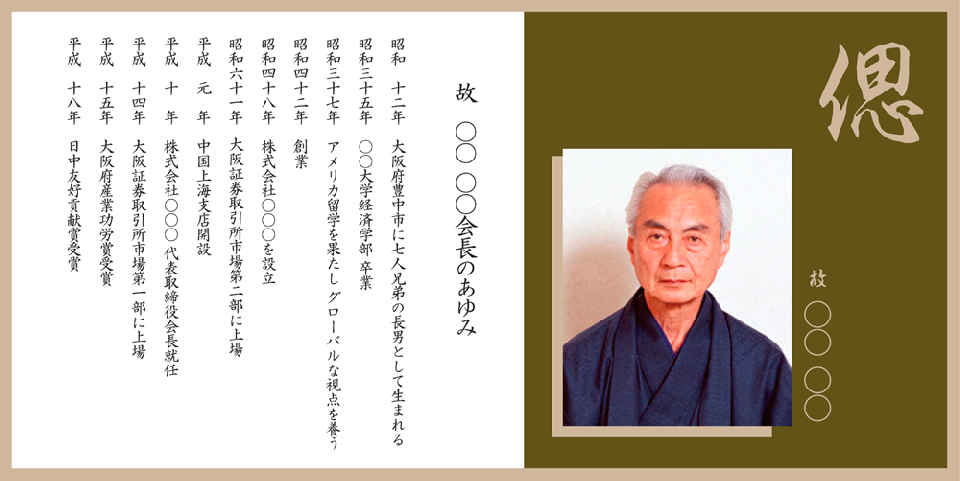 偲
故 〇〇 〇〇
故 〇〇 〇〇会長のあゆみ
昭和 十二年 大阪府豊中市に七人兄弟の長男として生まれる
昭和三十五年 〇〇大学経済学部 卒業
昭和三十七年 アメリカ留学を果たし グローバルな視点を養う
昭和四十二年 創業
昭和四十八年 株式会社〇〇〇を設立
昭和六十一年 大阪証券取引所市場第二部に上場
平成 元 年 中国上海支店開設
平成 十 年 株式会社〇〇〇 代表取締役会長就任
平成 十四年 大阪証券取引所市場第一部に上場
平成 十五年 大阪府産業功労賞受賞
平成 十八年 日中友好貢献賞受賞